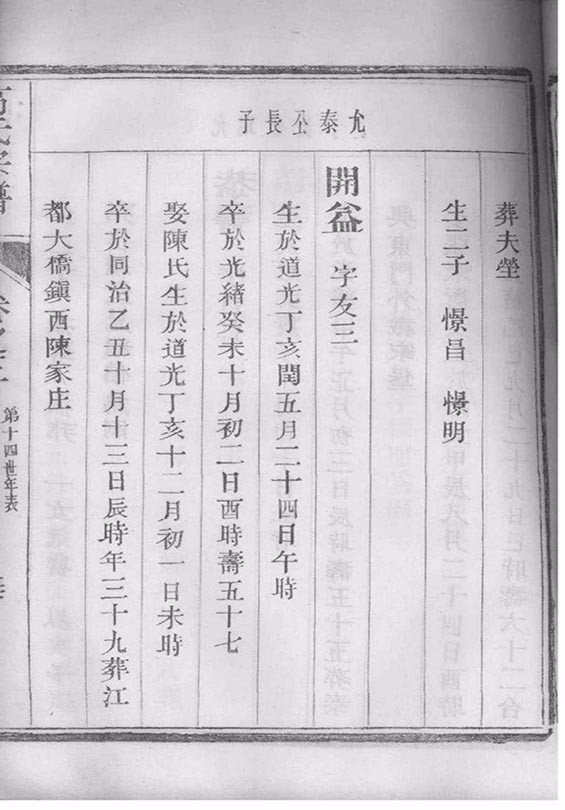 葬夫塋
生二子　憬昌　憬明
允泰公長子
開益　字友三
生於道光丁亥閏五月二十四日午時
卒於光緒癸未十月初二日酉時壽五十七
娶陳氏生於道光丁亥十二月初一日未時
卒於同治乙丑十月十三日辰時年三十九葬江
都大橋鎮西陳家庄
氏宗譜
第十四世年表